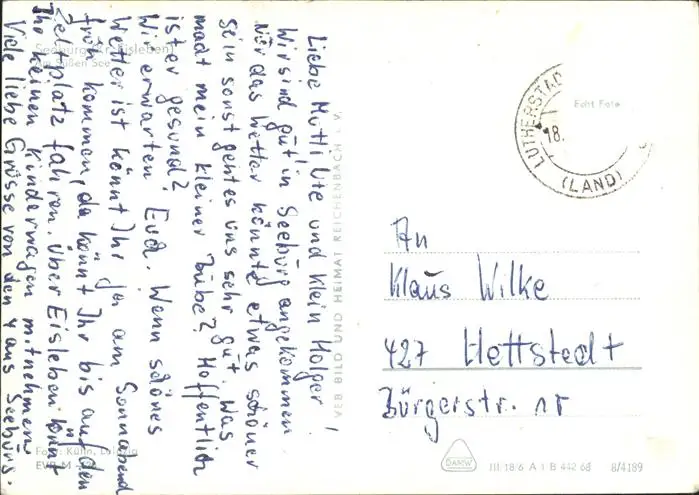 Liebe Mutti, Ute und klein Holger!
Wir sind gut in Seeburg angekommen
nur das Wetter könnte etwas schöner
sein sonst geht es uns sehr gut. Was
macht mein kleiner Bube? Hoffentlich
ist er gesund?
Wir erwarten Euch. Wenn schönes
Wetter ist könnt Ihr ja am Sonnabend
früh kommen, da könnt Ihr bis auf den
Zeltplatz fahren. Über Eisleben könnt
Ihr keinen Kinderwagen mitnehmen
Viele liebe Grüsse von den 4 aus Seeburg.
Seeburg (Kr. Eisleben)
Am Süßen See
Foto: Kühn, Leipzig
VEB BILD UND HEIMAT REICHENBACH i. V.
Echt Foto
LUTHERSTAD
18.
(LAND)
An
Klaus Wilke
427 Hettstedt
Bürgerstr. 15
DAMW
III 18/6 A 1 B 442 68 8/4189